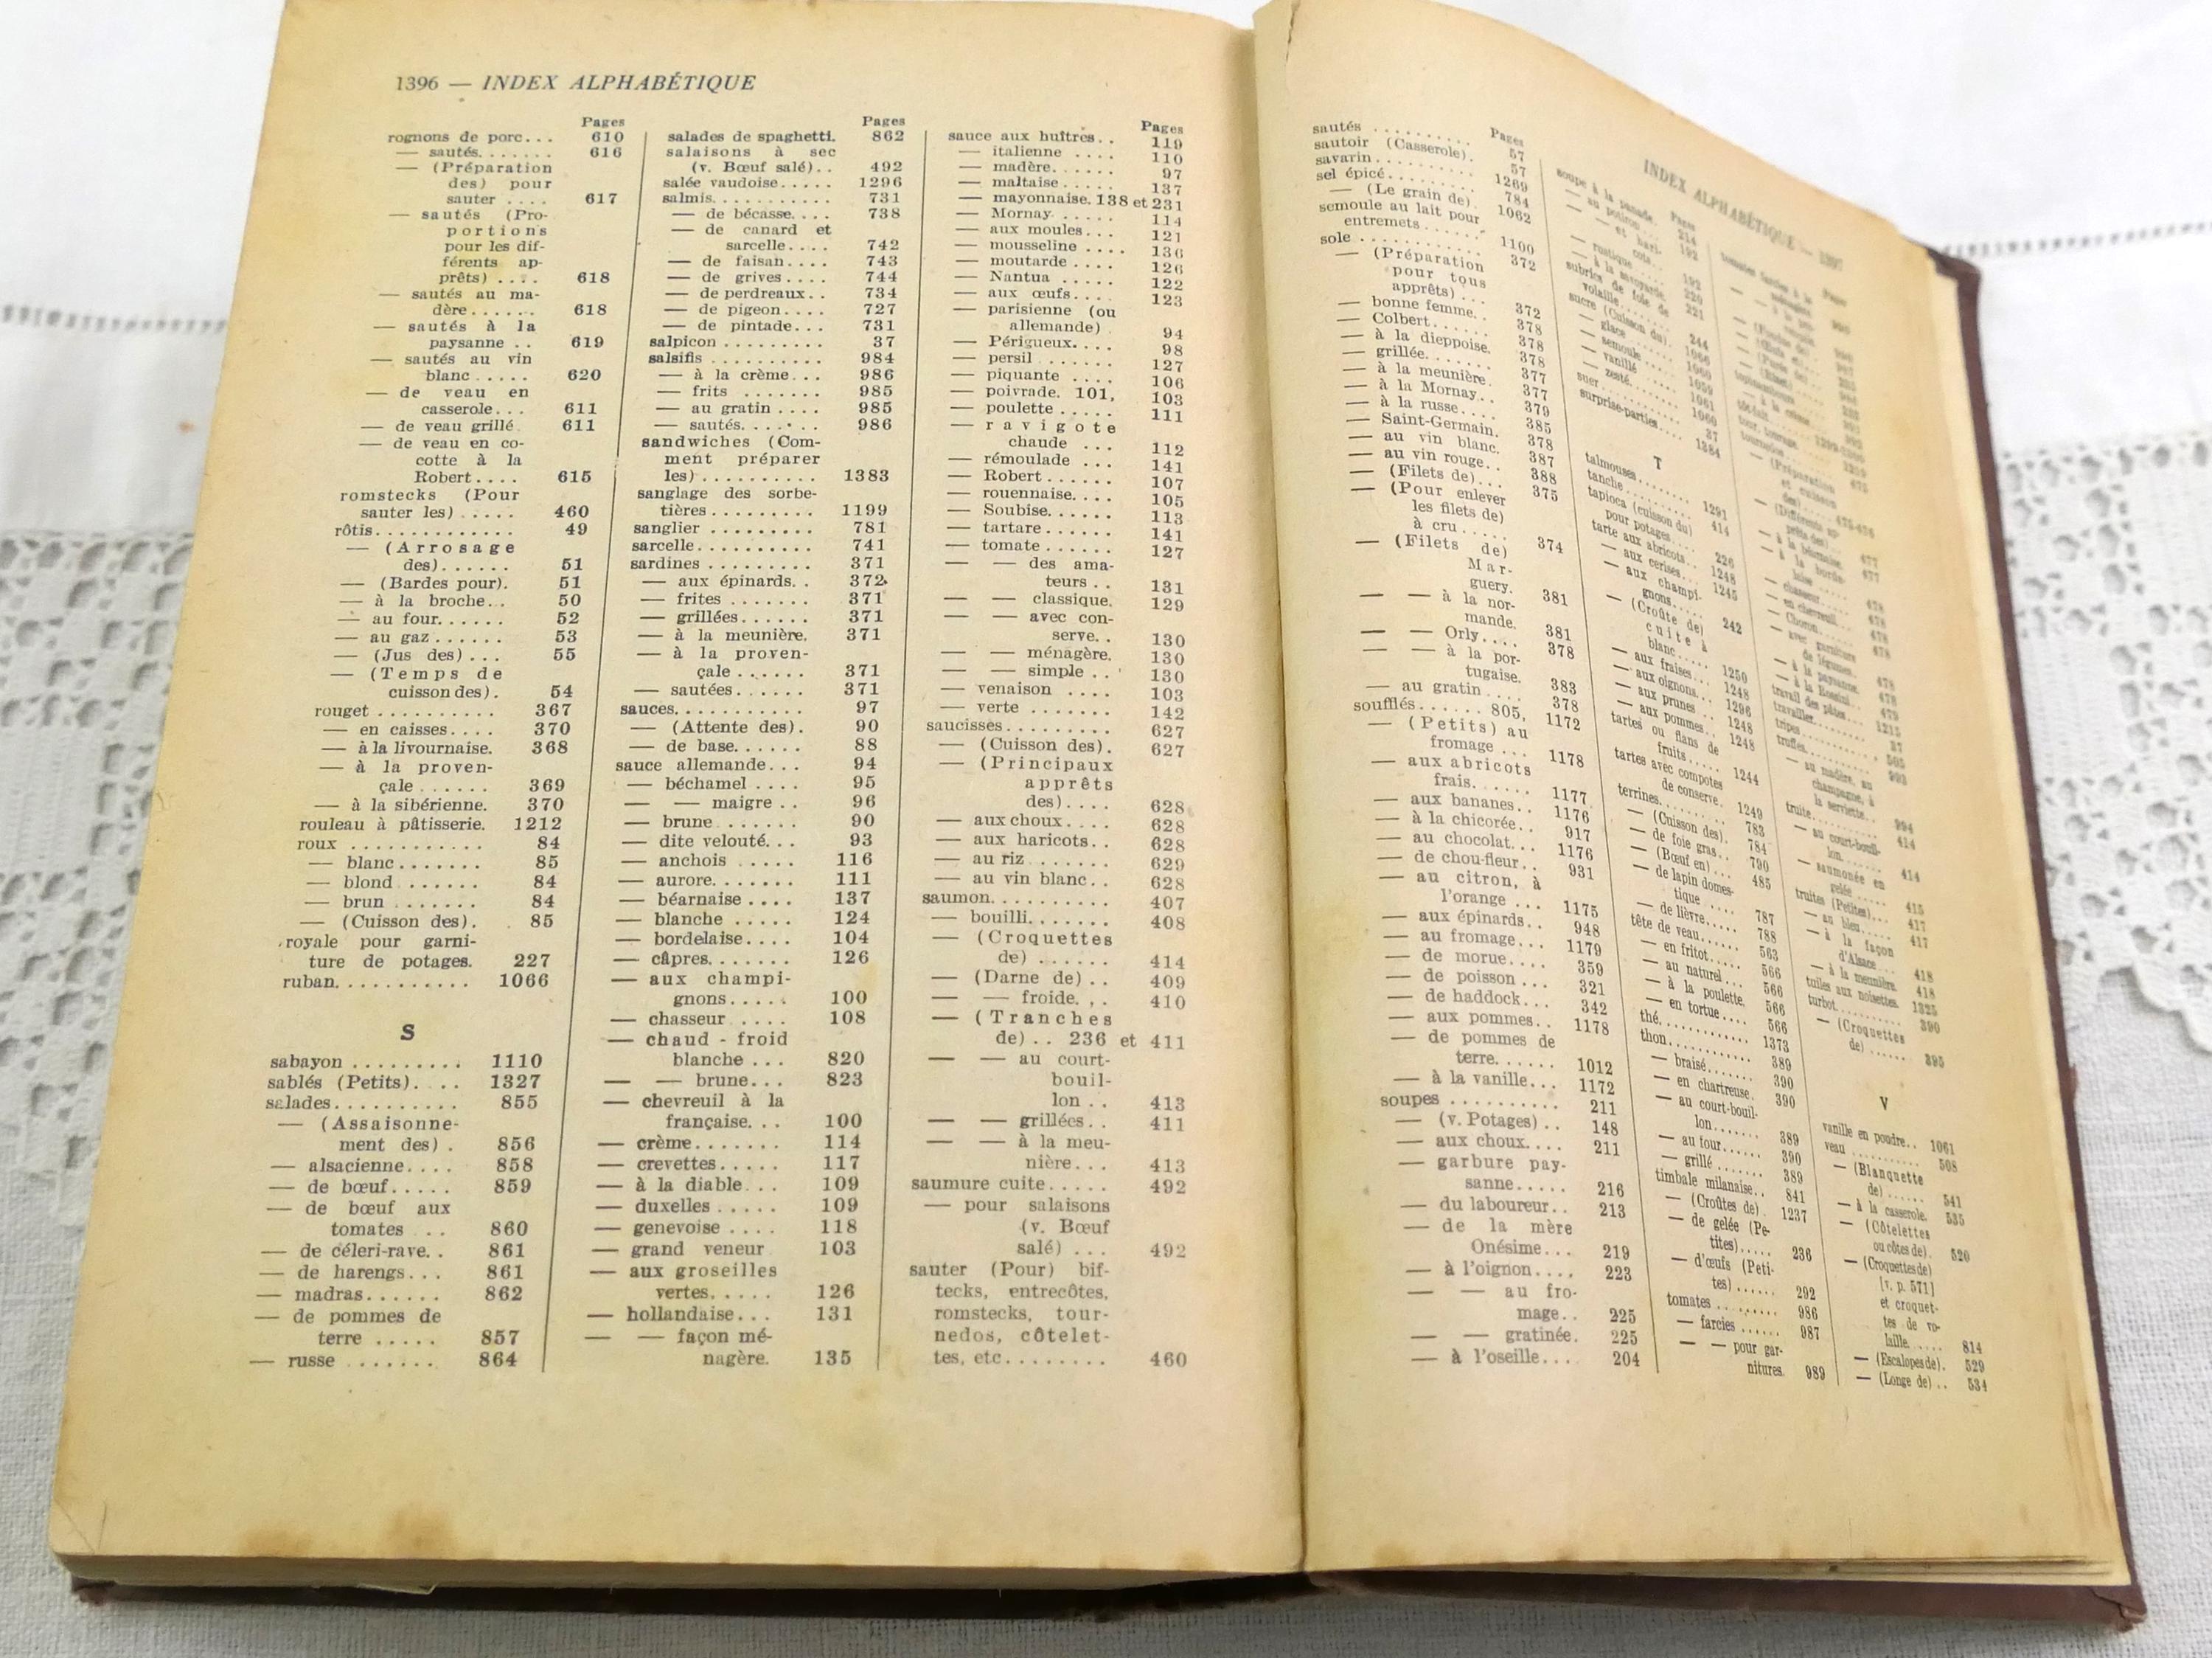 1396 — INDEX ALPHABÉTIQUE
Pages
rognons de porc... 610
— sautés....... 616
— (Préparation
des) pour
sauter .... 617
— sautés (Pro-
portions
pour les dif-
férents ap-
prêts) .... 618
— sautés au ma-
dère...... 618
— sautés à la
paysanne .. 619
— sautés au vin
blanc ..... 620
— de veau en
casserole... 611
— de veau grillé. 611
— de veau en co-
cotte à la
Robert.... 615
romstecks (Pour
sauter les) ..... 460
rôtis............ 49
— (Arrosage
des)...... 51
— (Bardes pour). 51
— à la broche... 50
— au four...... 52
— au gaz...... 53
— (Jus des)... 55
— (Temps de
cuisson des). 54
rouget .......... 367
— en caisses.... 370
— à la livournaise. 368
— à la proven-
çale ...... 369
— à la sibérienne. 370
rouleau à pâtisserie. 1212
roux ........... 84
— blanc....... 85
— blond ....... 84
— brun ....... 84
— (Cuisson des). 85
royale pour garni-
ture de potages. 227
ruban........... 1066
S
sabayon ......... 1110
sablés (Petits).... 1327
salades.......... 855
— (Assaisonne-
ment des) . 856
— alsacienne.... 858
— de bœuf..... 859
— de bœuf aux
tomates ... 860
— de céleri-rave.. 861
— de harengs... 861
— madras...... 862
— de pommes de
terre ..... 857
— russe ....... 864
Pages
salades de spaghetti. 862
salaisons à sec
(v. Bœuf salé).. 492
salée vaudoise..... 1296
salmis........... 731
— de bécasse.... 738
— de canard et
sarcelle.... 742
— de faisan.... 743
— de grives.... 744
— de perdreaux.. 734
— de pigeon.... 727
— de pintade... 731
salpicon ......... 37
salsifis .......... 984
— à la crème... 986
— frits ....... 985
— au gratin .... 985
— sautés....... 986
sandwiches (Com-
ment préparer
les) .......... 1383
sanglage des sorbe-
tières ......... 1199
sanglier ......... 781
sarcelle.......... 741
sardines ......... 371
— aux épinards.. 372
— frites ....... 371
— grillées...... 371
— à la meunière. 371
— à la proven-
çale ...... 371
— sautées...... 371
sauces........... 97
— (Attente des). 90
— de base...... 88
sauce allemande... 94
— béchamel .... 95
— — maigre .. 96
— brune ....... 90
— dite velouté... 93
— anchois ..... 116
— aurore....... 111
— béarnaise .... 137
— blanche ..... 124
— bordelaise.... 104
— câpres...... 126
— aux champi-
gnons..... 100
— chasseur ..... 108
— chaud - froid
blanche ... 820
— — brune... 823
— chevreuil à la
française... 100
— crème....... 114
— crevettes..... 117
— à la diable... 109
— duxelles ..... 109
— genevoise .... 118
— grand veneur 103
— aux groseilles
vertes..... 126
— hollandaise... 131
— — façon mé-
nagère. 135
Pages
sauce aux huîtres.. 119
— italienne .... 110
— madère...... 97
— maltaise ..... 137
— mayonnaise. 138 et 231
— Mornay ..... 114
— aux moules... 121
— mousseline ... 136
— moutarde .... 126
— Nantua ..... 122
— aux œufs.... 123
— parisienne (ou
allemande) . 94
— Périgueux.... 98
— persil ...... 127
— piquante .... 106
— poivrade. 101, 103
— poulette ..... 111
— ravigote
chaude ... 112
— rémoulade ... 141
— Robert...... 107
— rouennaise.... 105
— Soubise...... 113
— tartare...... 141
— tomate ...... 127
— — des ama-
teurs .. 131
— — classique. 129
— — avec con-
serve.. 130
— — ménagère. 130
— — simple .. 130
— venaison .... 103
— verte ....... 142
saucisses......... 627
— (Cuisson des). 627
— (Principaux
apprêts
des).... 628
— aux choux.... 628
— aux haricots.. 628
— au riz ....... 629
— au vin blanc.. 628
saumon.......... 407
— bouilli....... 408
— (Croquettes
de) ...... 414
— (Darne de) .. 409
— — froide... 410
— (Tranches
de) .. 236 et 411
— — au court-
bouil-
lon .. 413
— — grillées.. 411
— — à la meu-
nière... 413
saumure cuite..... 492
— pour salaisons
(v. Bœuf
salé) ... 492
sauter (Pour) bif-
tecks, entrecôtes,
romstecks, tour-
nedos, côtelet-
tes, etc........ 460
INDEX ALPHABÉTIQUE — 1397
Pages
sautés ......... 57
sautoir (Casserole). 57
savarin.......... 1269
sel épicé......... 784
— (Le grain de). 1062
semoule au lait pour
entremets...... 1100
sole ............ 372
— (Préparation
pour tous
apprêts) ... 372
— bonne femme.. 378
— Colbert...... 378
— à la dieppoise. 378
— grillée...... 377
— à la meunière. 377
— à la Mornay.. 379
— à la russe.... 385
— Saint-Germain. 378
— au vin blanc. 387
— au vin rouge.. 388
— (Filets de)... 375
— (Pour enlever
les filets de)
à cru ..... 374
— (Filets de)
Mar-
guery. 381
— — à la nor-
mande. 381
— — Orly.... 378
— — à la por-
tugaise. 383
— au gratin .... 378
soufflés...... 805, 1172
— (Petits) au
fromage ... 1178
— aux abricots
frais...... 1177
— aux bananes.. 1176
— à la chicorée.. 917
— au chocolat... 1176
— de chou-fleur.. 931
— au citron, à
l'orange ... 1175
— aux épinards.. 948
— au fromage... 1179
— de morue.... 359
— de poisson ... 321
— de haddock... 342
— aux pommes.. 1178
— de pommes de
terre...... 1012
— à la vanille... 1172
soupes .......... 211
— (v. Potages).. 148
— aux choux.... 211
— garbure pay-
sanne..... 216
— du laboureur.. 213
— de la mère
Onésime... 219
— à l'oignon.... 223
— — au fro-
mage.. 225
— — gratinée. 225
— à l'oseille.... 204
Pages
soupe à la panade. 214
— au potiron... 192
— — et hari-
cots.. 192
— rustique..... 220
— à la savoyarde. 221
subrics de foie de
volaille....... 244
sucre (Cuisson du). 1066
— glace ...... 1060
— semoule .... 1059
— vanillé ..... 1061
— zesté....... 1060
suer............ 37
surprise-parties.... 1384
T
talmouses........ 1291
tanche.......... 414
tapioca (cuisson du)
pour potages.... 226
tarte aux abricots.. 1248
— aux cerises... 1245
— aux champi-
gnons..... 242
— (Croûte de)
cuite à
blanc..... 1250
— aux fraises... 1248
— aux oignons.. 1296
— aux prunes .. 1248
— aux pommes.. 1248
tartes ou flans de
fruits..... 1244
tartes avec compotes
de conserve. 1249
terrines.......... 783
— (Cuisson des). 784
— de foie gras.. 790
— (Bœuf en)... 485
— de lapin domes-
tique .... 787
— de lièvre..... 788
tête de veau...... 563
— en fritot..... 566
— au naturel ... 566
— à la poulette. 566
— en tortue.... 566
thé............. 1373
thon............ 389
— braisé....... 390
— en chartreuse. 390
— au court-bouil-
lon....... 389
— au four...... 390
— grillé ....... 389
timbale milanaise.. 841
— (Croûtes de). 1237
— de gelée (Pe-
tites)..... 236
— d'œufs (Peti-
tes)...... 292
tomates ......... 986
— farcies ...... 987
— — pour gar-
nitures. 989
Pages
— (Préparation
et cuisson
— à la béarnaise. 477
— chasseur.... 478
— en chevreuil. 478
— Choron.... 478
— avec garniture
de légumes. 478
— à la paysanne. 478
— à la Rossini. 479
travail des pâtes... 1215
travailler........ 37
tripes........... 505
truffes.......... 993
— au madère, au
champagne, à
la serviette.. 994
truite........... 414
— au court-bouil-
lon...... 414
— saumonée en
gelée.... 415
truites (Petites)... 417
— au bleu..... 417
— à la façon
d'Alsace... 418
— à la meunière. 418
tuiles aux noisettes. 1325
turbot.......... 390
— (Croquettes
de) ...... 395
V
vanille en poudre.. 1061
veau ........... 508
— (Blanquette
de) ...... 541
— à la casserole. 535
— (Côtelettes
ou côtes de). 520
— (Croquettes de)
[v. p. 571]
et croquet-
tes de vo-
laille..... 814
— (Escalopes de). 529
— (Longe de) .. 534